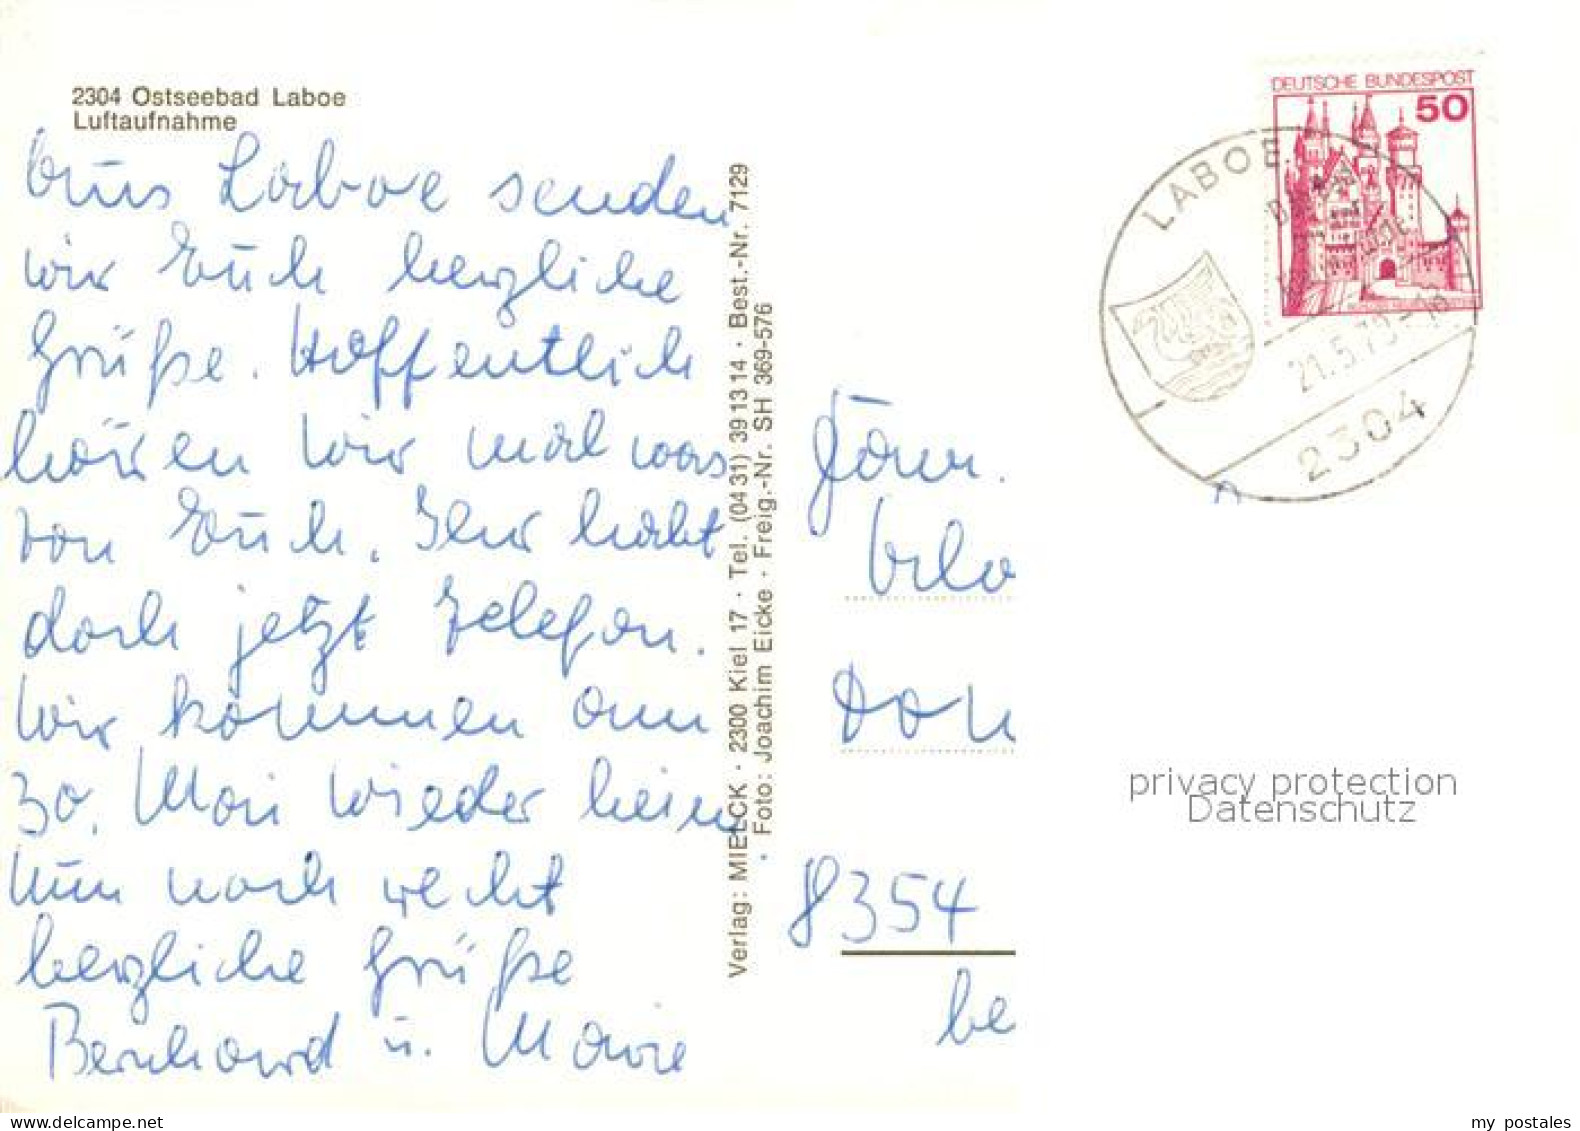 2304 Ostseebad Laboe
Luftaufnahme
Aus Laboe senden
wir Euch herzliche
Grüße. Hoffentlich
hören wir mal was
von Euch. Ihr habt
doch jetzt Telefon.
Wir kommen am
30. Mai wieder heim
Nun noch recht
herzliche Grüße
Bernhard u. Marie
Verlag: MIELCK · 2300 Kiel 17 · Tel. (0431) 39 13 14 · Best.-Nr. 7129
· Foto: Joachim Eicke · Freig.-Nr. SH 369-576
DEUTSCHE BUNDESPOST
50
LABOE
21.5.79-16
2304
Fam.
Don
8354
be
privacy protection
Datenschutz
my postales